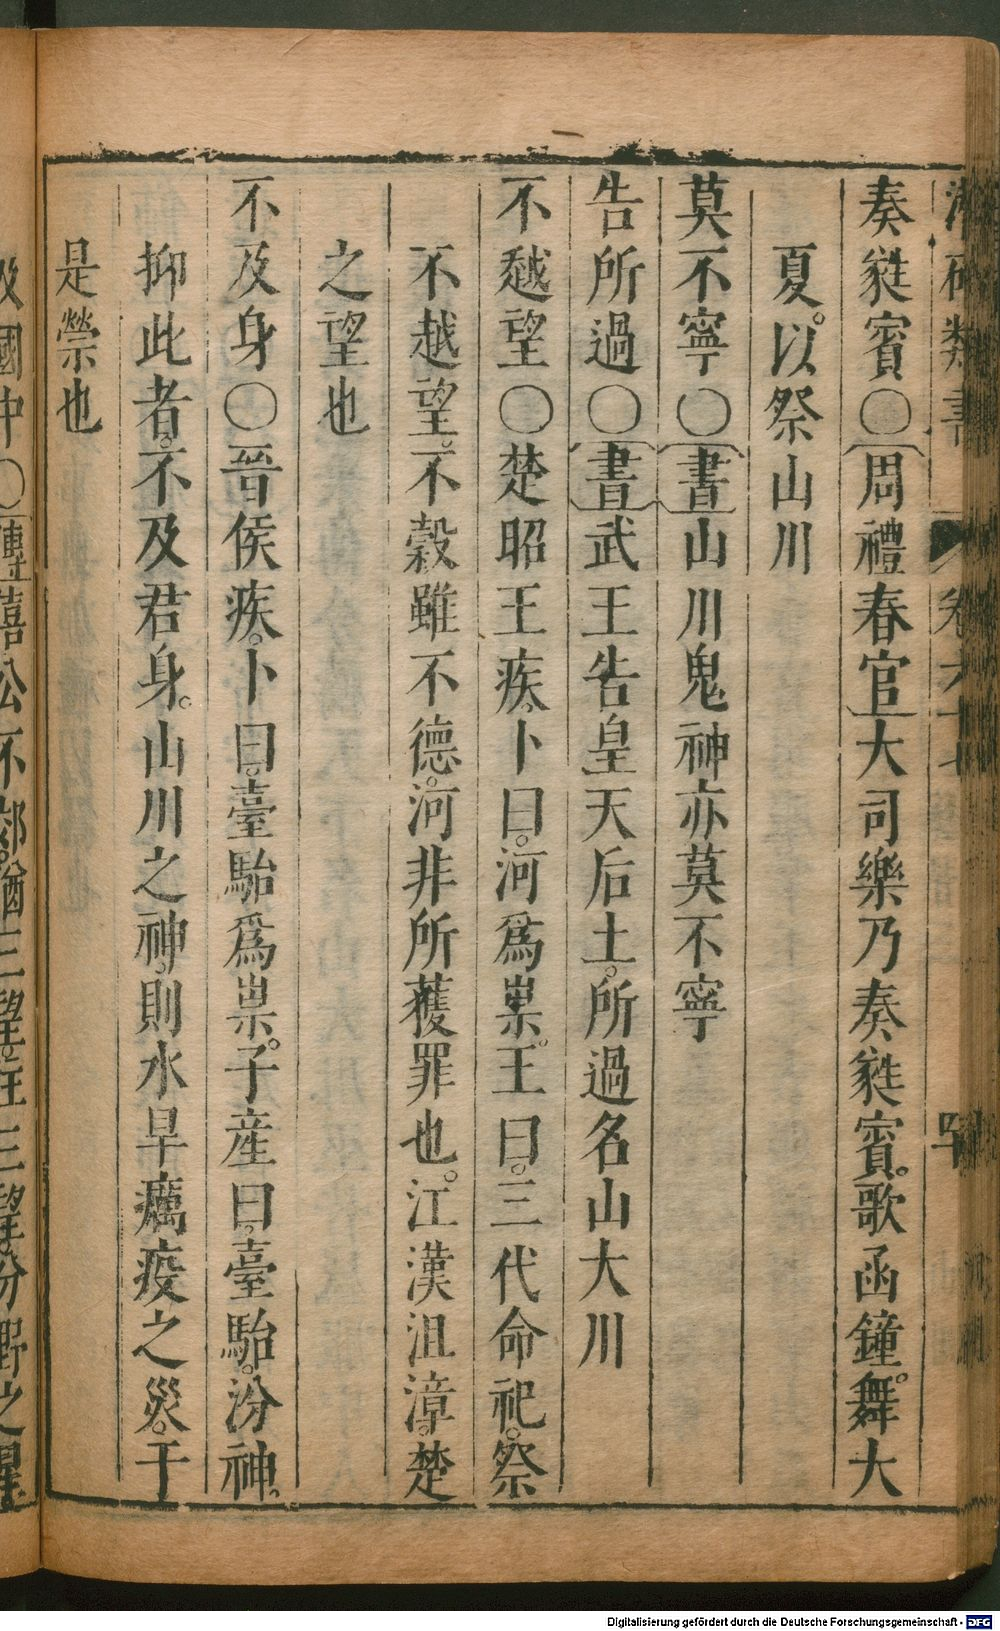 奏蕤賓〇周禮春官大司樂乃奏蕤賓。歌函鐘。舞大
夏。以祭山川
莫不寧〇書山川鬼神亦莫不寧
告所過〇書武王告皇天后土。所過名山大川
不越望〇楚昭王疾。卜曰。河爲祟。王曰。三代命祀。祭
不越望。不穀雖不德。河非所獲罪也。江漢沮漳。楚
之望也
不及身〇晉侯疾。卜曰。臺駘爲祟。子産曰。臺駘。汾神。
抑此者。不及君身。山川之神。則水旱癘疫之災。于
是禜也
國中〇傳僖公不郊猶三望。注三望。分野之星
Digitalisierung gefördert durch die Deutsche Forschungsgemeinschaft - DFG